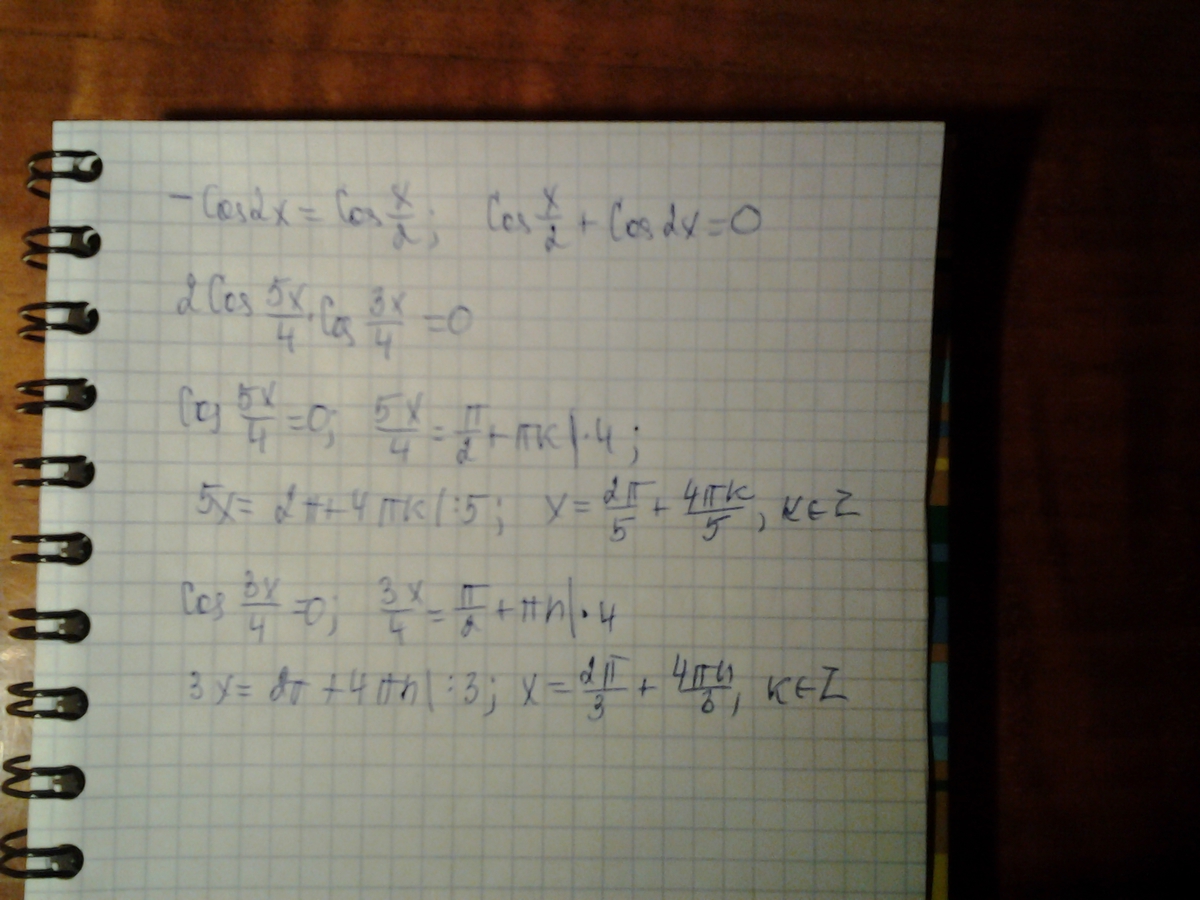 -Cos2x = Cos x/2; Cos x/2 + Cos2x = 0
2Cos 5x/4 · Cos 3x/4 = 0
Cos 5x/4 = 0; 5x/4 = π/2 + πк | · 4;
5x = 2π + 4πк | :5; x = 2π/5 + 4πк/5, к∈Z
Cos 3x/4 = 0; 3x/4 = π/2 + πn | · 4
3x = 2π + 4πn | :3; x = 2π/3 + 4πn/3, к∈Z